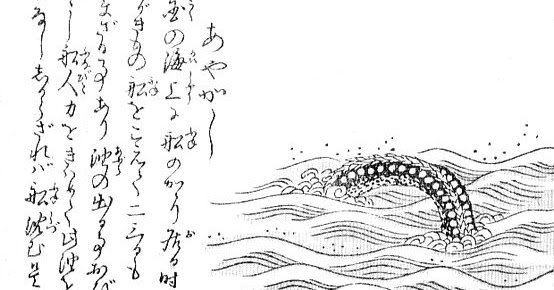 あやかし
国の海上に船のかゝり居る時
がきもの船をこえて二三日も
まざる事あり油の出る事おび
し船人力をきはめて此油を
なししからざれば船沈む是